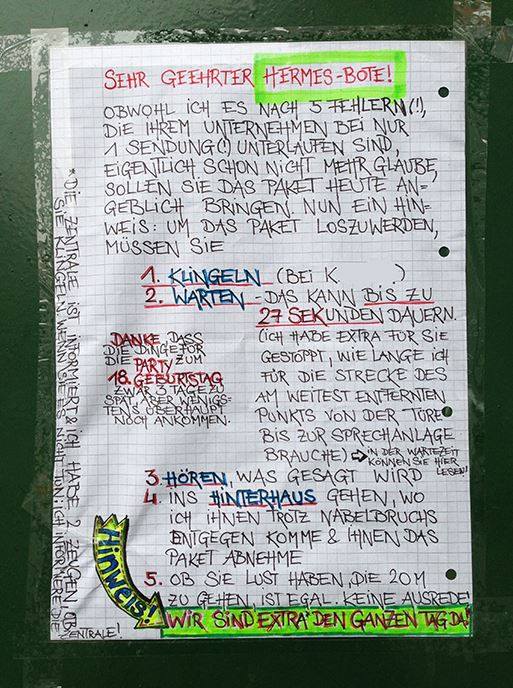 SEHR GEEHRTER HERMES-BOTE!
OBWOHL ICH ES NACH 5 FEHLERN(!),
DIE IHREM UNTERNEHMEN BEI NUR
1 SENDUNG(!) UNTERLAUFEN SIND,
EIGENTLICH SCHON NICHT MEHR GLAUBE,
SOLLEN SIE DAS PAKET HEUTE AN=
GEBLICH BRINGEN. NUN EIN HIN=
WEIS: UM DAS PAKET LOSZUWERDEN,
MÜSSEN SIE
1. KLINGELN (BEI K )
2. WARTEN - DAS KANN BIS ZU
27 SEKUNDEN DAUERN.
(ICH HABE EXTRA FÜR SIE
GESTOPPT, WIE LANGE ICH
FÜR DIE STRECKE DES
AM WEITEST ENTFERNTEN
PUNKTS VON DER TÜRE
BIS ZUR SPRECHANLAGE
BRAUCHE) ⇨ IN DER WARTEZEIT
KÖNNEN SIE HIER
LESEN!
DANKE, DASS
DIE DINGE FÜR
DIE PARTY ZUM
18. GEBURTSTAG
ZWAR 3 TAGE ZU
SPÄT, ABER WENIGS=
TENS ÜBERHAUPT
NOCH ANKOMMEN.
3. HÖREN, WAS GESAGT WIRD
4. INS HINTERHAUS GEHEN, WO
ICH IHNEN TROTZ NABELBRUCHS
ENTGEGEN KOMME & IHNEN DAS
PAKET ABNEHME
5. OB SIE LUST HABEN, DIE 20 M
ZU GEHEN, IST EGAL. KEINE AUSREDE!
Hinweis!
WIR SIND EXTRA DEN GANZEN TAG DA!
*DIE ZENTRALE IST INFORMIERT & ICH HABE 2 ZEUGEN, OB
SIE KLINGELN. WENN SIE ES NICHT TUN: ICH INFORMIERE DIE
ZENTRALE!